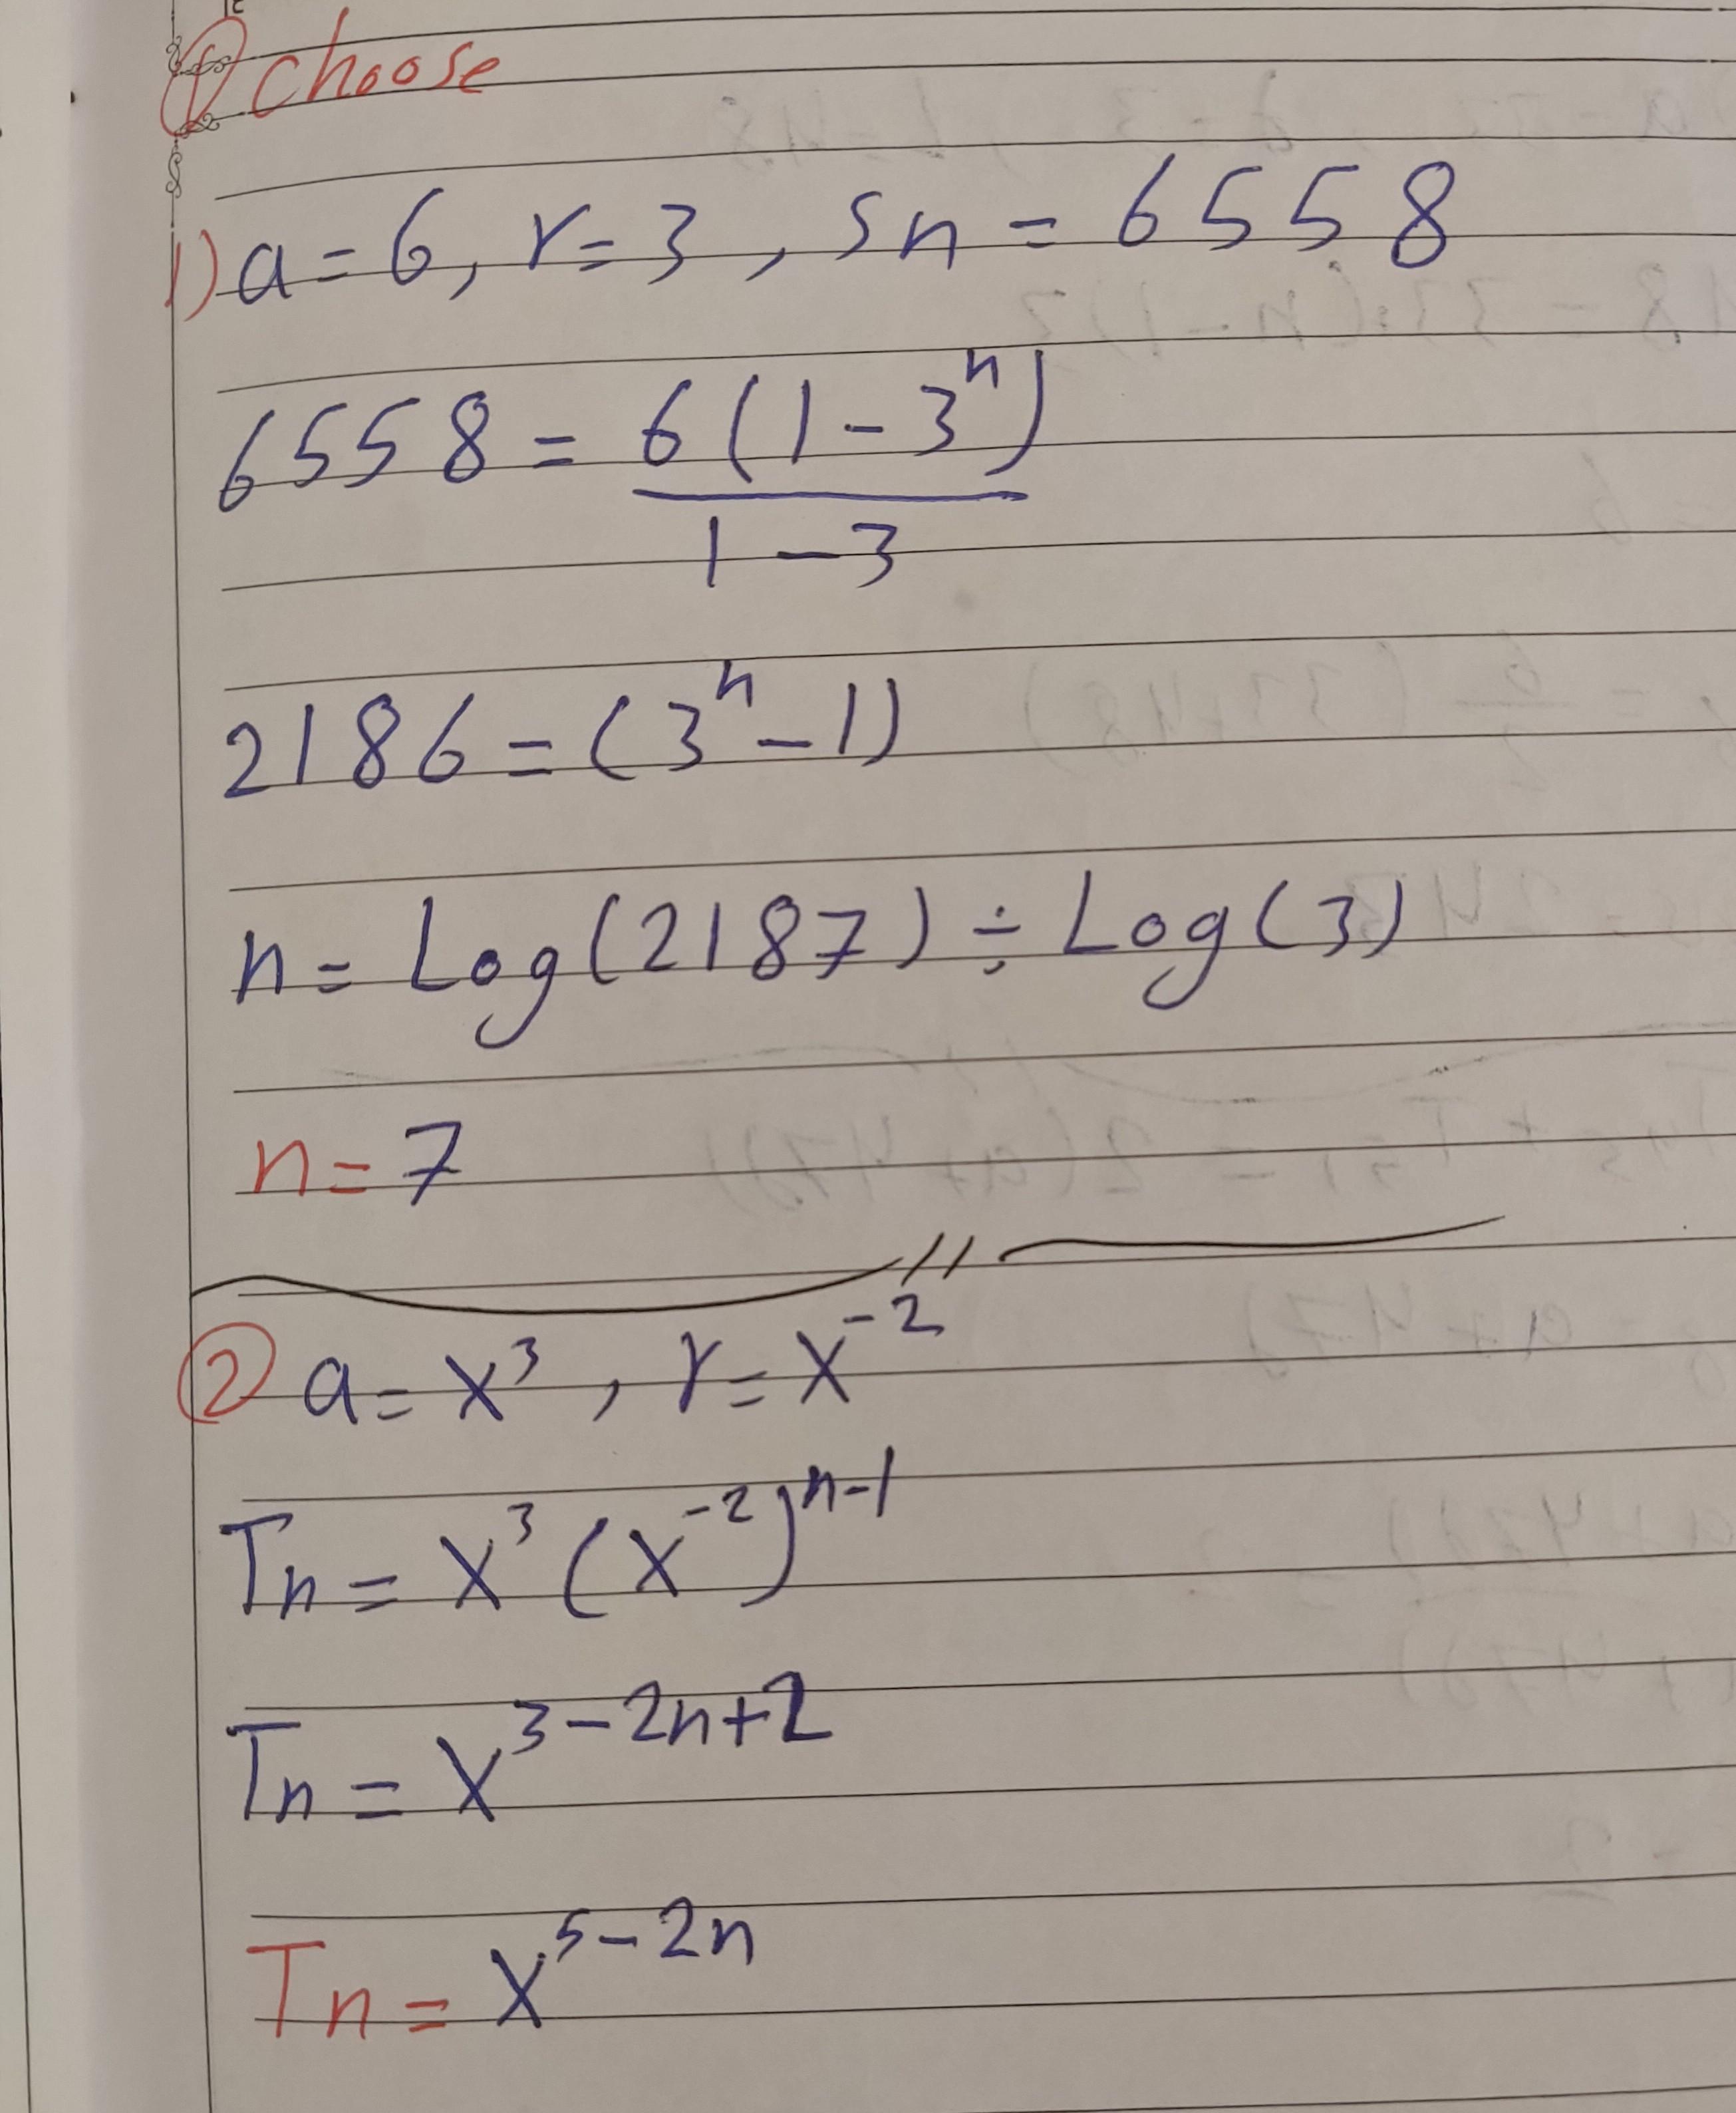 ① choose
1) a = 6, r = 3, Sn = 6558
6558 = 6(1-3ⁿ) / 1-3
2186 = (3ⁿ-1)
n = Log(2187) ÷ Log(3)
n = 7
② a = x³, r = x⁻²
Tn = x³(x⁻²)ⁿ⁻¹
Tn = x^3-2n+2
Tn = x^5-2n